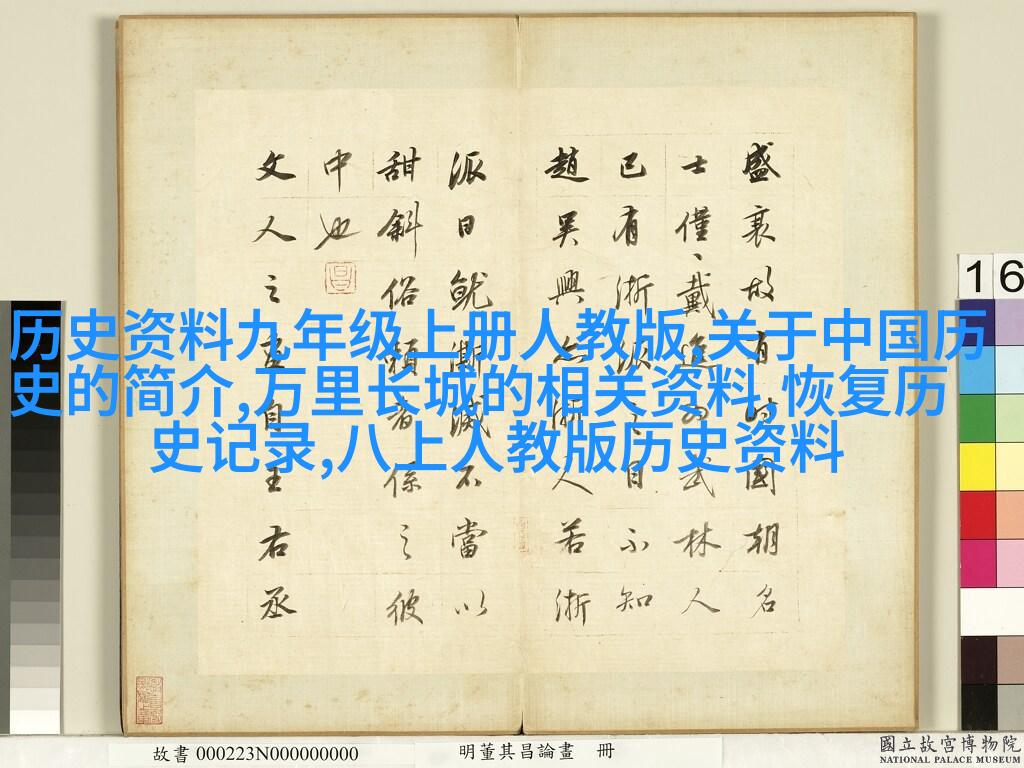 盛衰故有時國朝名
士僅、戴進為武林人
已有浙派之目不知
趙吳興亦浙人若浙
派日就澌滅不當以
甜斜俗賴者係之彼
中也
文人之畫自王右丞
历史资料九年级上册人教版,关于中国历
史的简介,万里长城的相关资料,恢复历
史记录,八上人教版历史资料
16
故書 000223N000000000
明董其昌論畫 冊
國立故宮博物院
NATIONAL PALACE MUSEUM